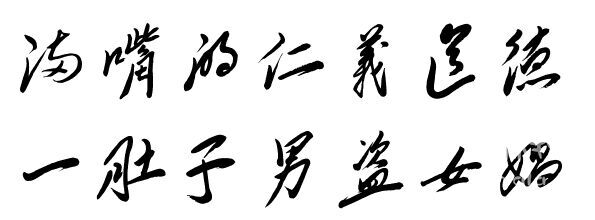 满嘴的仁義道德
一肚子男盗女娼